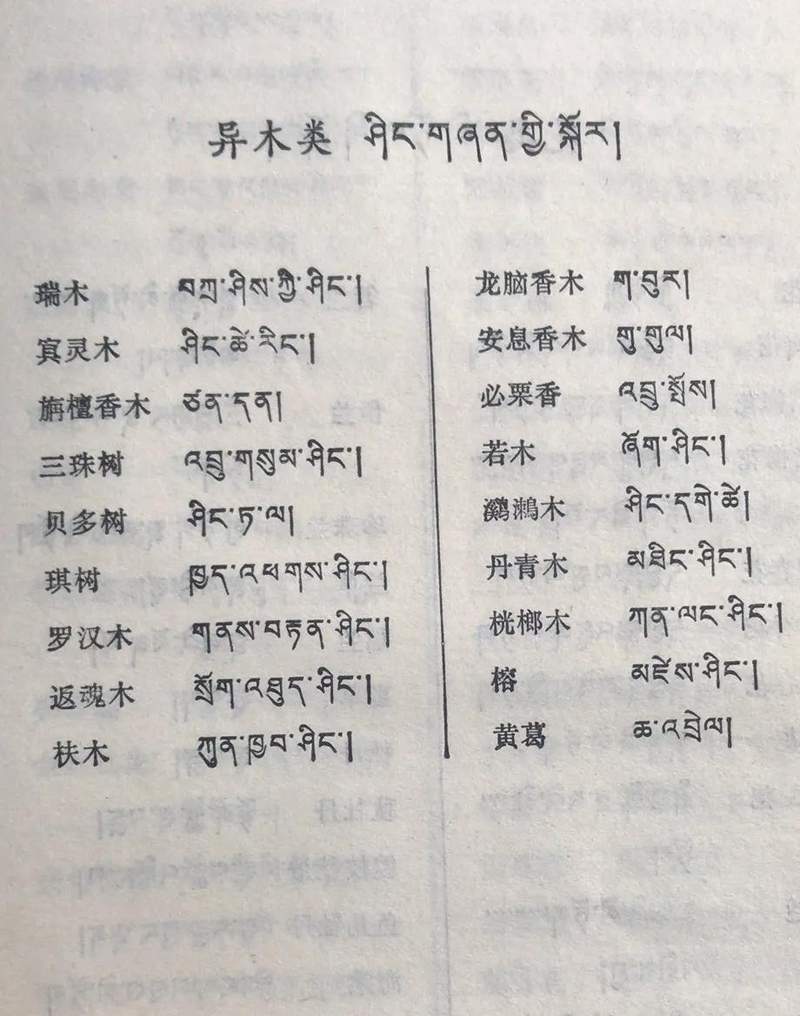 异木类 ཤིང་གཞན་གྱི་སྐོར།
瑞木 བཀྲ་ཤིས་ཀྱི་ཤིང་།
宾灵木 ཤིང་ཚེ་རིང་།
旃檀香木 ཙན་དན།
三珠树 འབྲུ་གསུམ་ཤིང་།
贝多树 ཤིང་ཏ་ལ།
琪树 ཁྱད་འཕགས་ཤིང་།
罗汉木 གནས་བརྟན་ཤིང་།
返魂木 སྲོག་འཐུད་ཤིང་།
扶木 ཀུན་ཁྱབ་ཤིང་།
龙脑香木 ག་བུར།
安息香木 གུ་གུལ།
必栗香 འབྲུ་སྤོས།
若木 ཞོག་ཤིང་།
鸂鶒木 ཤིང་དགེ་ཚེ།
丹青木 མཐིང་ཤིང་།
桄榔木 ཀན་ལང་ཤིང་།
榕 མཛེས་ཤིང་།
黄葛 ཆ་འབྲེལ།